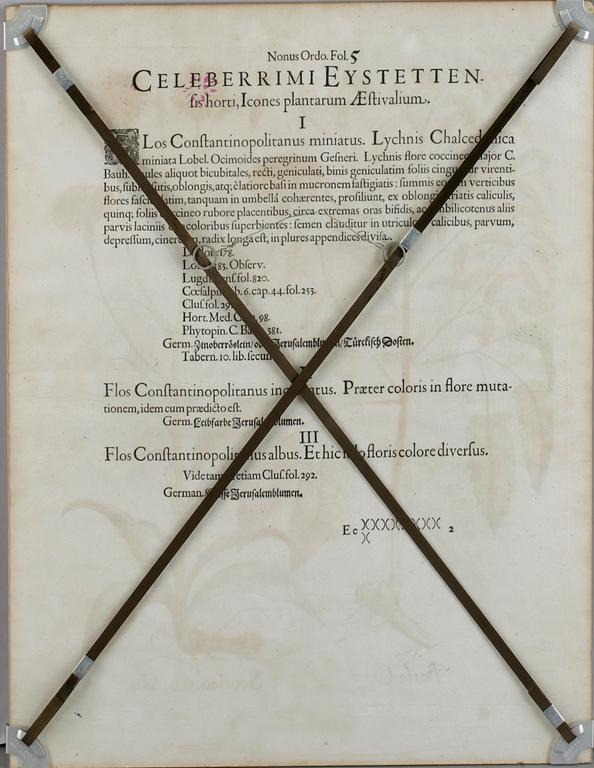 Nonus Ordo. Fol. 5
CELEBERRIMI EYSTETTEN-
sis horti, Icones plantarum Æstivalium.
I
Los Constantinopolitanus miniatus. Lychnis
miniata Lobel. Ocimoides peregrinum Gesneri. Lychnis flore coccineo major C.
Bauh. aliquot bicubitales, recti, geniculati, binis geniculatim foliis virenti-
bus, oblongis, atq; elatiore basi in mucronem fastigiatis: summis verticibus
flores tanquam in umbella cohærentes, prosiliunt, ex oblongis caliculis,
quinq; foliis rubore placentibus, circa extremas oras bifidis, ac umbilicotenus aliis
parvis laciniis coloribus superbientes: semen clauditur in utriculis calicibus, parvum,
depressum, radix longa est, in plures appendices divisa.
178.
Observ.
fol. 820.
6. cap. 44. fol. 253.
Cluf. fol.
Hort. Med. 98.
Phytopin. C. 381.
Germ. Zinoberröslein/ Jerusalemblumen/ Türckisch Dosten.
Tabern. 10. lib.
Flos Constantinopolitanus Præter coloris in flore muta-
tionem, idem cum prædicto est.
Germ. Leibfarbe
III
Flos Constantinopolitanus albus. Et hic floris colore diversus.
Vide Clus. fol. 292.
German. Jerusalemblumen.
Ee 2